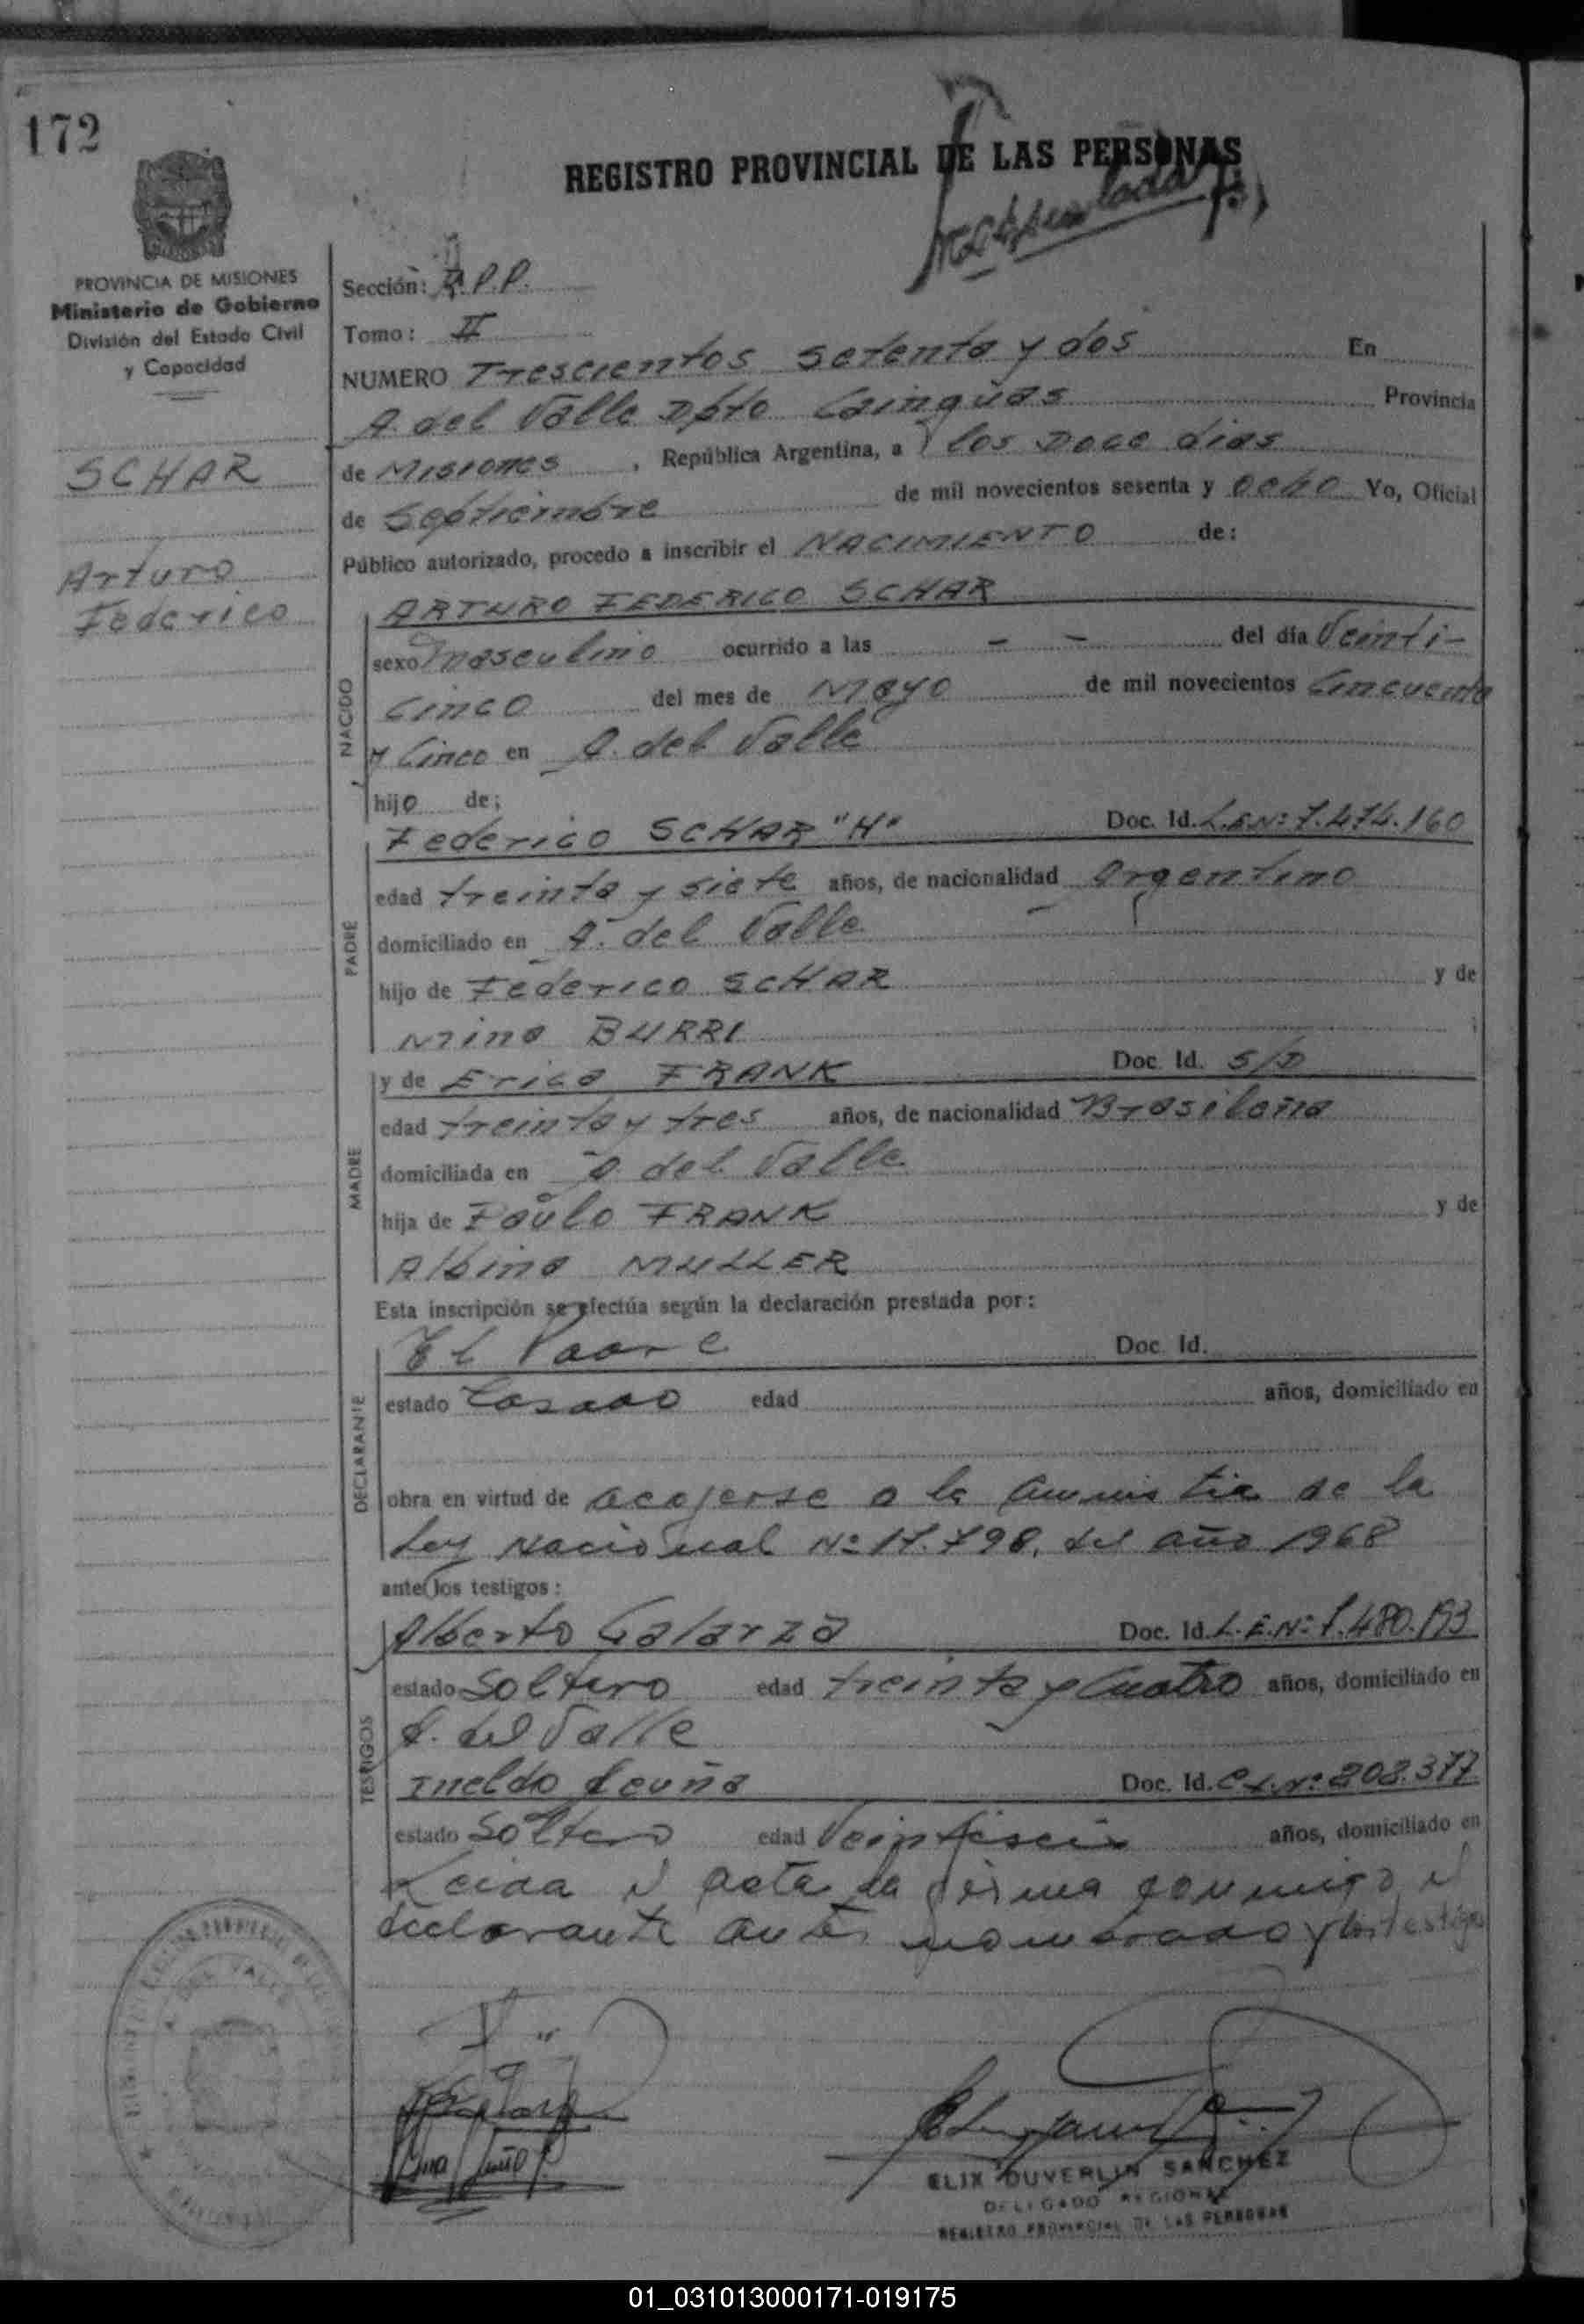 172
REGISTRO PROVINCIAL DE LAS PERSONAS
PROVINCIA DE MISIONES
Ministerio de Gobierno
División del Estado Civil
y Capacidad
SCHAR
Arturo
Federico
Sección: A.P.P.
Tomo: II
NUMERO Trescientos Setenta y dos En
A. del Valle Dpto Cainguas Provincia
de Misiones , República Argentina, a los Doce dias
de Septiembre de mil novecientos sesenta y ocho Yo, Oficial
Público autorizado, procedo a inscribir el NACIMIENTO de:
NACIDO
ARTURO FEDERICO SCHAR
sexo Masculino ocurrido a las - - del día Veinti-
cinco del mes de Mayo de mil novecientos Cincuenta
y Cinco en A. del Valle
hijo de;
PADRE
Federico SCHAR "H" Doc. Id. L.E.Nº 7.474.160
edad treinta y siete años, de nacionalidad Argentino
domiciliado en A. del Valle
hijo de Federico SCHAR y de
Mina BURRI
MADRE
y de Erica FRANK Doc. Id. S/D
edad treinta y tres años, de nacionalidad Brasileña
domiciliada en A. del Valle
hija de Paulo FRANK y de
Albina MULLER
Esta inscripción se efectúa según la declaración prestada por:
DECLARANTE
El Padre Doc. Id.
estado Casado edad años, domiciliado en
obra en virtud de acojerse a la amnistia de la
Ley Nacional Nº 17.798, del año 1968
ante los testigos:
TESTIGOS
Alberto Galarza Doc. Id. L.E.Nº 7.480.193
estado Soltero edad treinta y Cuatro años, domiciliado en
A. del Valle
Doc. Id. C.I.Nº 202.377
estado Soltero edad Veintiseis años, domiciliado en
Leida el acta la firma conmigo el
declarante antes nombrado y los testigos
ELIX DUVERLIN SANCHEZ
DELEGADO REGIONAL
REGISTRO PROVINCIAL DE LAS PERSONAS
01_031013000171-019175